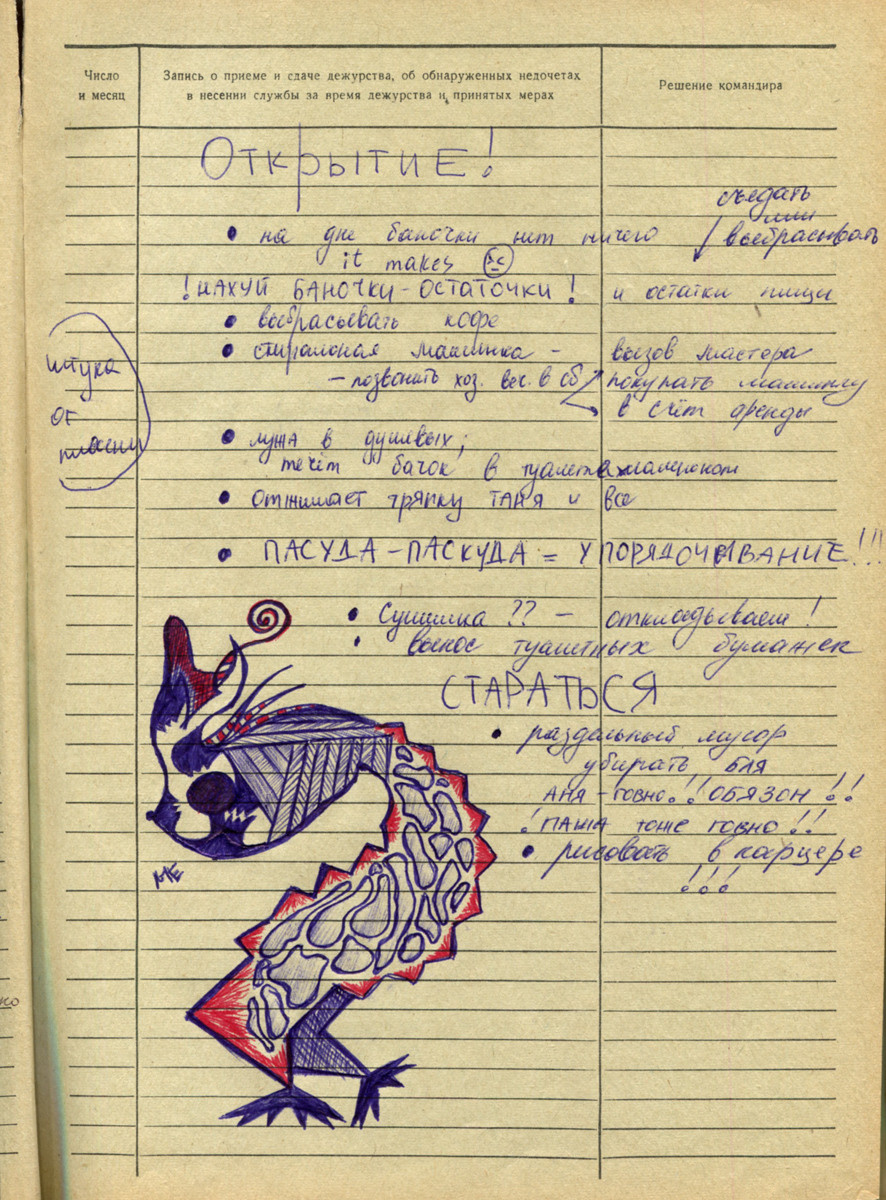 Число и месяц
Запись о приеме и сдаче дежурства, об обнаруженных недочетах
в несении службы за время дежурства и принятых мерах
Решение командира
Открытие!
съедать
или
• на дне баночки нет ничего / выбрасывать
it takes
! НАХУЙ БАНОЧКИ-ОСТАТОЧКИ! и остатки пищи
• выбрасывать кофе
• стиральная машинка - вызов мастера
- позвонить хоз. веч. в сб покупать машинку
в счёт аренды
штука
от
плесени
• лужа в душевых;
течёт бачок в туалете маленьком
• отжимает тряпку ТАНЯ и все
• ПАСУДА-ПАСКУДА = УПОРЯДОЧИВАНИЕ!!!
• Сушилка ?? - откладываем!
• вынос туалетных бумажек
СТАРАТЬСЯ
• раздельный мусор
убирать бля
АНЯ-ГОВНО!! ОБЯЗОН!!
! ПАША тоже говно!!
• рисовать в карцере
!!!